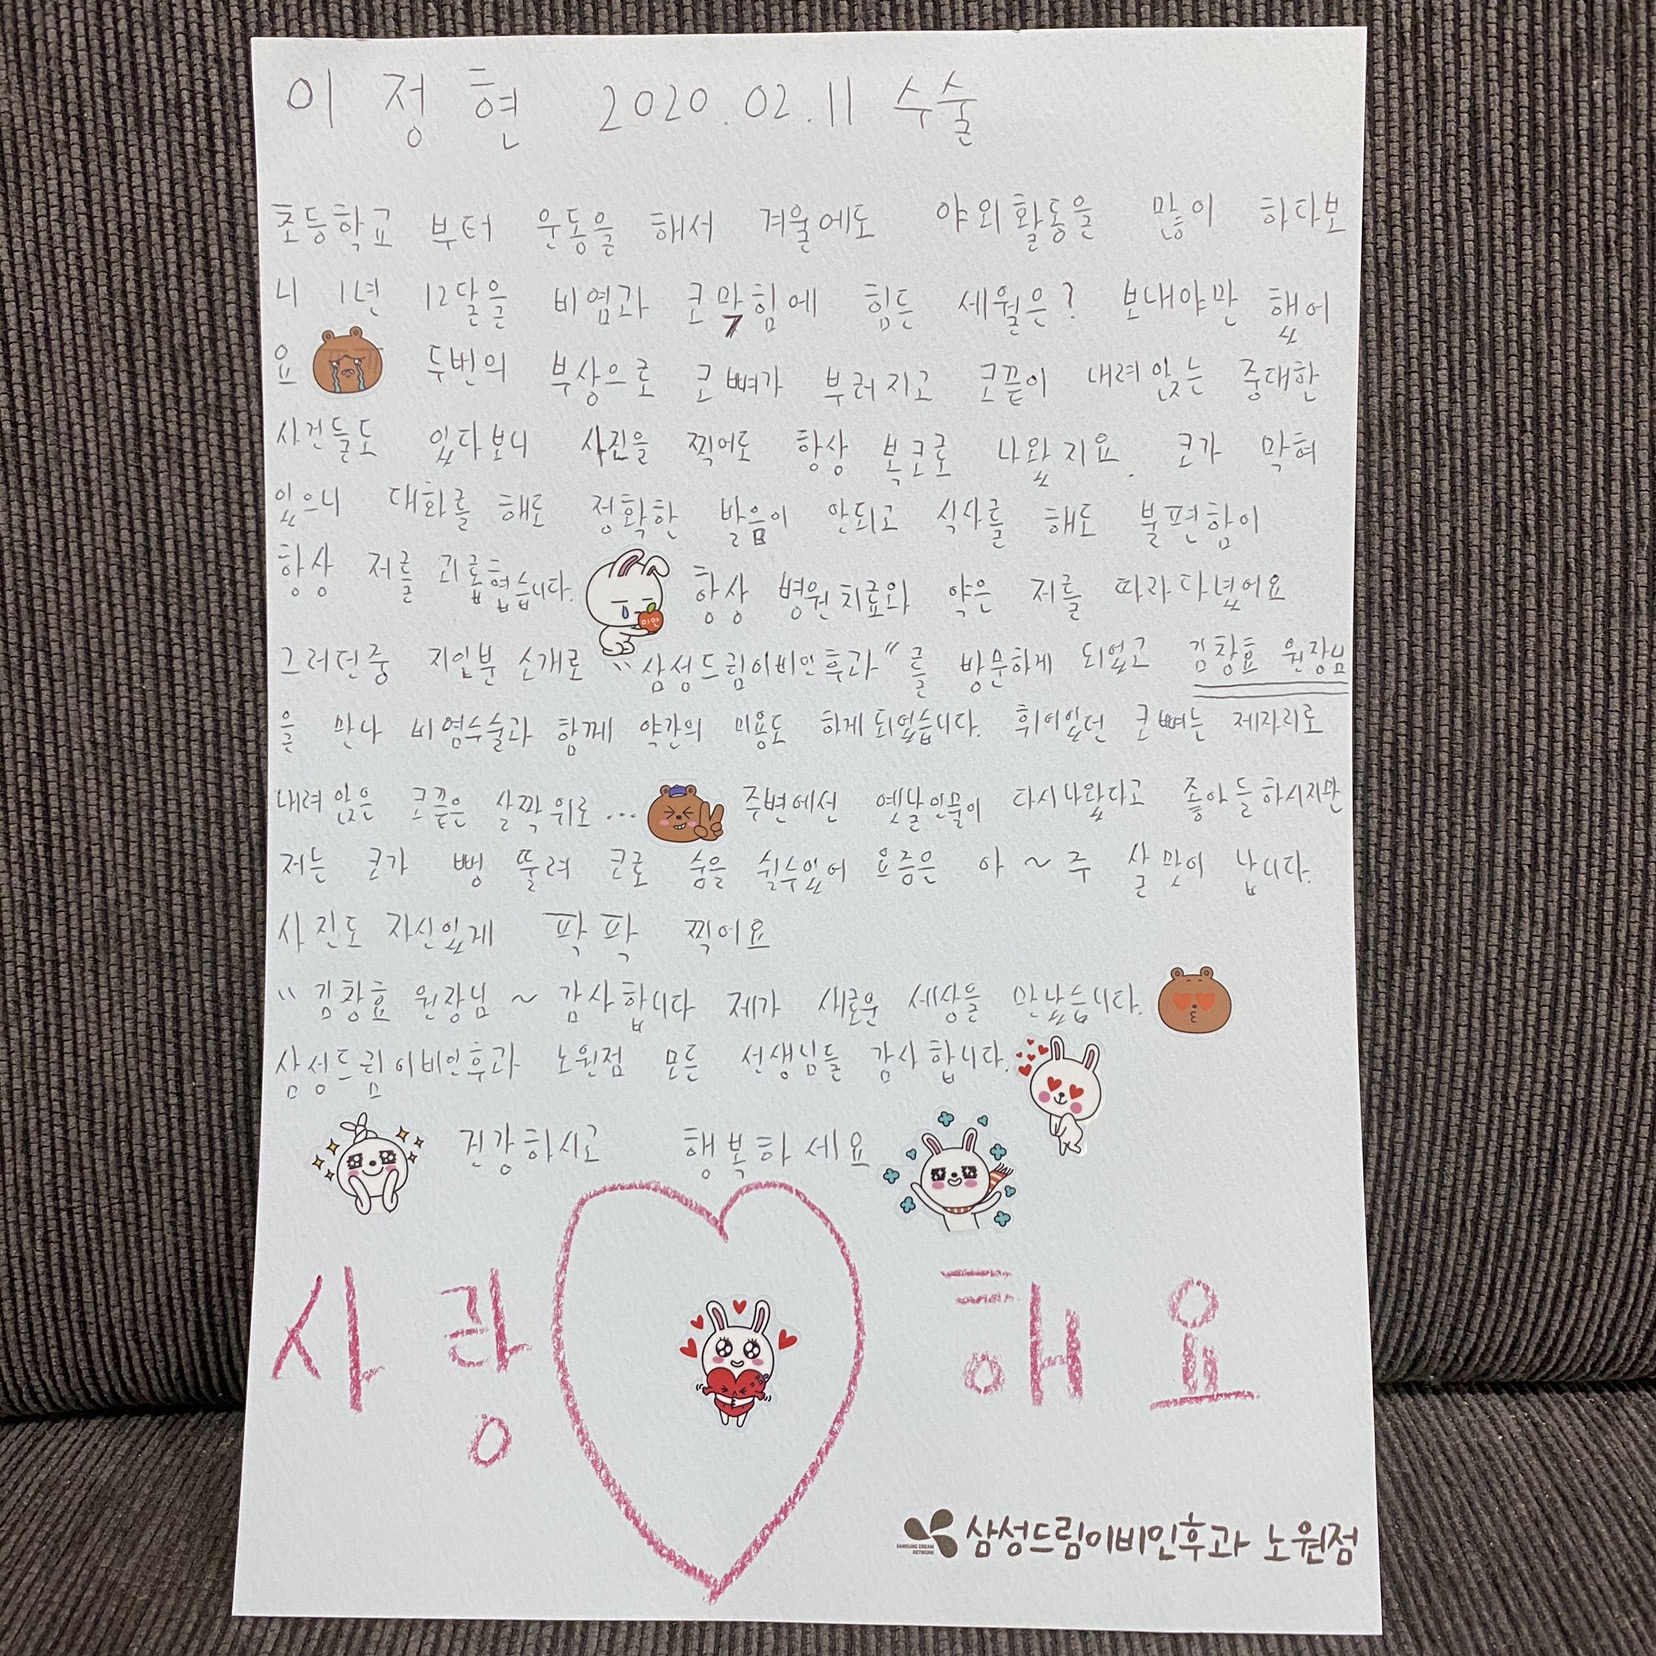 이정현 2020.02.11 수술
초등학교 부터 운동을 해서 겨울에도 야외활동을 많이 하다보
니 1년 12달을 비염과 코막힘에 힘든 세월은? 보내야만 했어
요 두번의 부상으로 코뼈가 부러지고 코끝이 내려앉는 중대한
사건들도 있다보니 사진을 찍어도 항상 복코로 나왔지요. 코가 막혀
있으니 대화를 해도 정확한 발음이 안되고 식사를 해도 불편함이
항상 저를 괴롭혔습니다. 항상 병원치료와 약은 저를 따라다녔어요
미안
그러던중 지인분 소개로 "삼성드림이비인후과"를 방문하게 되었고 김창효 원장님
을 만나 비염수술과 함께 약간의 미용도 하게되었습니다. 휘어있던 코뼈는 제자리로
내려앉은 코끝은 살짝 위로... 주변에선 옛날인물이 다시나왔다고 좋아들하시지만
저는 코가 뻥 뚫려 코로 숨을 쉴수있어 요즘은 아~주 살맛이 납니다.
사진도 자신있게 팍팍 찍어요
"김창효 원장님~ 감사합니다 제가 새로운 세상을 만났습니다.
삼성드림이비인후과 노원점 모든 선생님들 감사합니다.
건강하시고 행복하세요
사랑해요
SAMSUNG DREAM NETWORK 삼성드림이비인후과 노원점